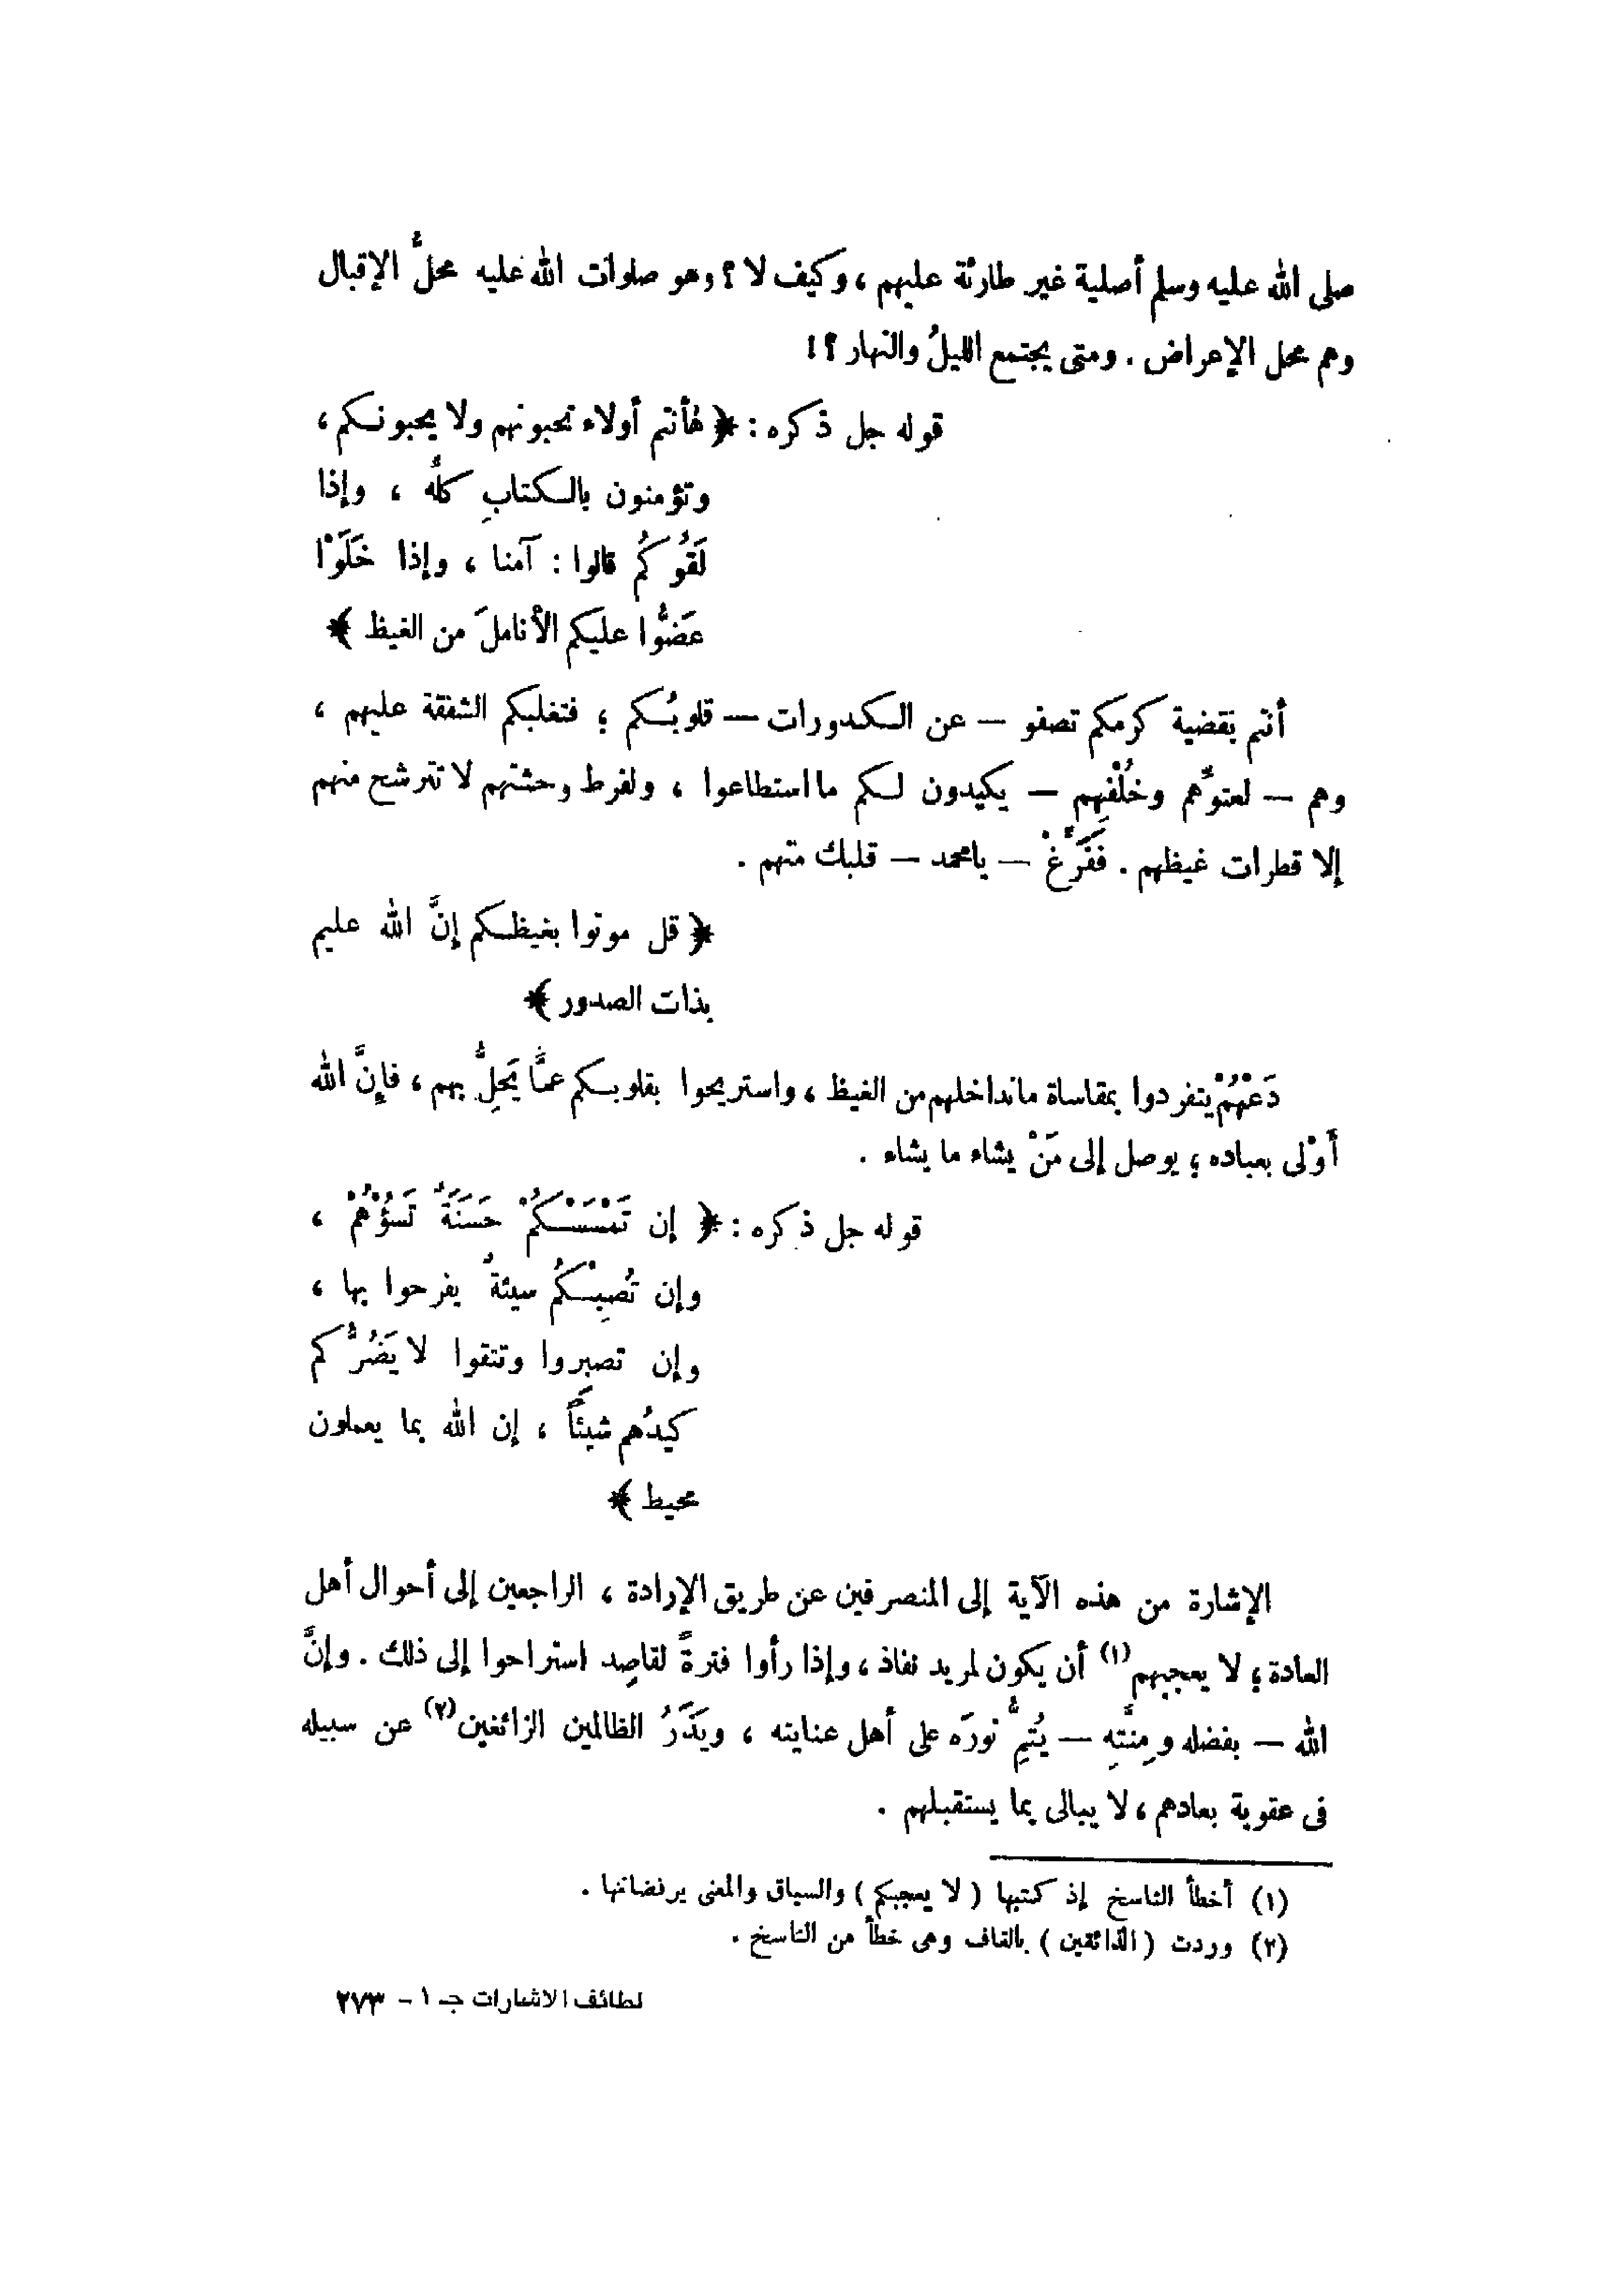 صلى الله عليه وسلم أصلية غير طارئة عليهم ، وكيف لا ؟ وهو صلوات الله عليه محلُّ الإقبال
وهم محل الإعراض . ومتى يجتمع الليلُ والنهار ؟ !
قوله جل ذكره : ﴿ هأنتم أولاء تحبونهم ولا يحبونكم ،
وتؤمنون بالكتابِ كلُّه ، وإذا
لَقُوكُم قالوا : آمنا ، وإذا خَلَوْا
عَضُّوا عليكم الأناملَ من الغيظ ﴾
أنتم بقضية كرمكم تصفو — عن الكدورات — قلوبُكم ؛ فتغلبكم الشفقة عليهم ،
وهم — لعتوِّهم وخُلْفِهم — يكيدون لكم ما استطاعوا ، ولفرط وحشتهم لا تترشح منهم
إلا قطرات غيظهم . فَفَرِّغْ — يا محمد — قلبك منهم .
﴿ قل موتوا بغيظكم إنَّ الله عليم
بذات الصدور ﴾
دَعْهُمْ يتفردوا بمقاساة ما تداخلهم من الغيظ ، واستريحوا بقلوبكم عمَّا يَحِلُّ بهم ، فإنَّ الله
أَوْلى بعباده ؛ يوصل إلى مَنْ يشاء ما يشاء .
قوله جل ذكره : ﴿ إن تَمْسَسْكُمْ حَسَنَةٌ تَسُؤْهُمْ ،
وإن تُصِبْكُم سيئةٌ يفرحوا بها ،
وإن تصبروا وتتقوا لا يَضُرُّكم
كيدُهم شيئاً ، إن الله بما يعملون
محيط ﴾
الإشارة من هذه الآية إلى المنصرفين عن طريق الإرادة ، الراجعين إلى أحوال أهل
العادة ؛ لا يعجبهم(١) أن يكون لمريد نفاذ ، وإذا رأوا فترةً لقاصِد استراحوا إلى ذلك . وإنَّ
الله — بفضله ومِنَّتِه — يُتمُّ نورَه على أهل عنايته ، ويَذَرُ الظالمين الزائغين(٢) عن سبيله
فى عقوبة بعادهم ، لا يبالى بما يستقبلهم .
(١) أخطأ الناسخ إذ كتبها ( لا يعجبكم ) والسياق والمعنى يرفضانها .
(٢) وردت ( الذائقين ) بالقاف وهى خطأ من الناسخ .
لطائف الاشارات جـ ١ - ٢٧٣